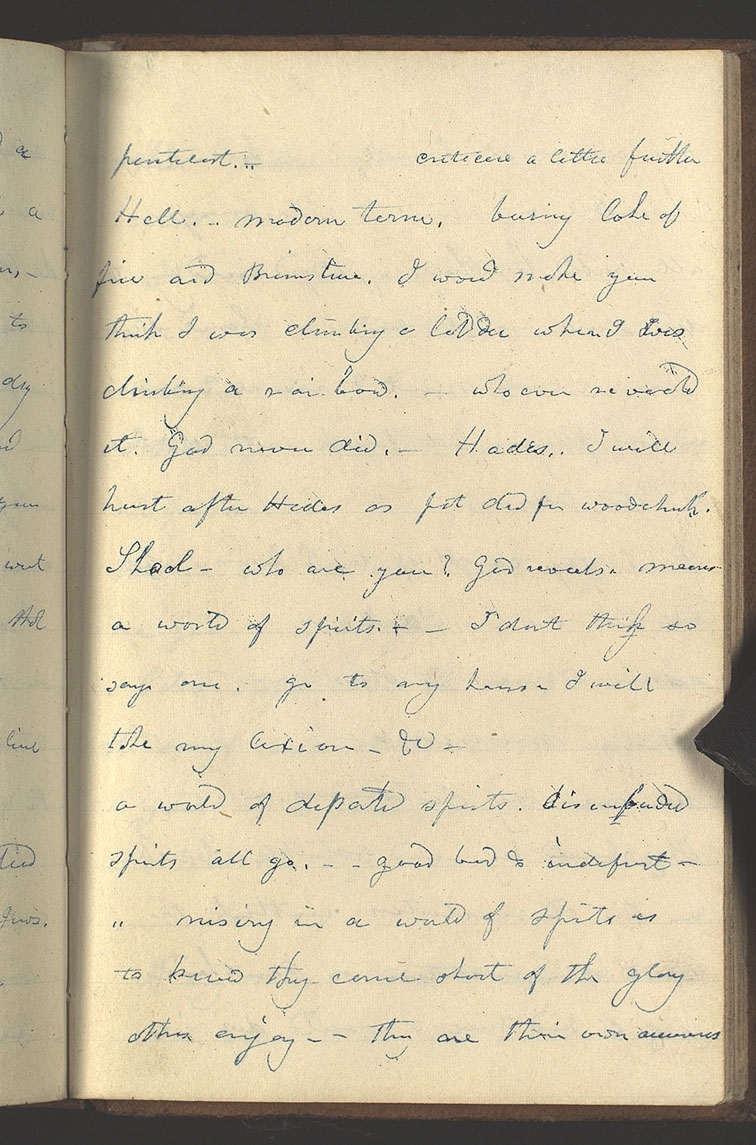 a
a
to
dry
pentecost. -- criticise a little further
Hell. -- modern term. burning Lake of
fire and Brimstone. I would make you
think I was climbing a ladder when I was
climbing a rainbow. — who ever revealed
it. God never did. — Hades.. I will
hunt after Hades as pat did for woodchuck.
Sheol - who are you? God reveals. means
a world of spirits. - — I dont think so
says one. go to my house I will
take my Lexicon - &c -
a world of departed spirits. disembodied
spirits all go. - - good bad & indifrent -
" misery in a world of spirits is
to know they come short of the glory
others enjoy - - they are their own accusers